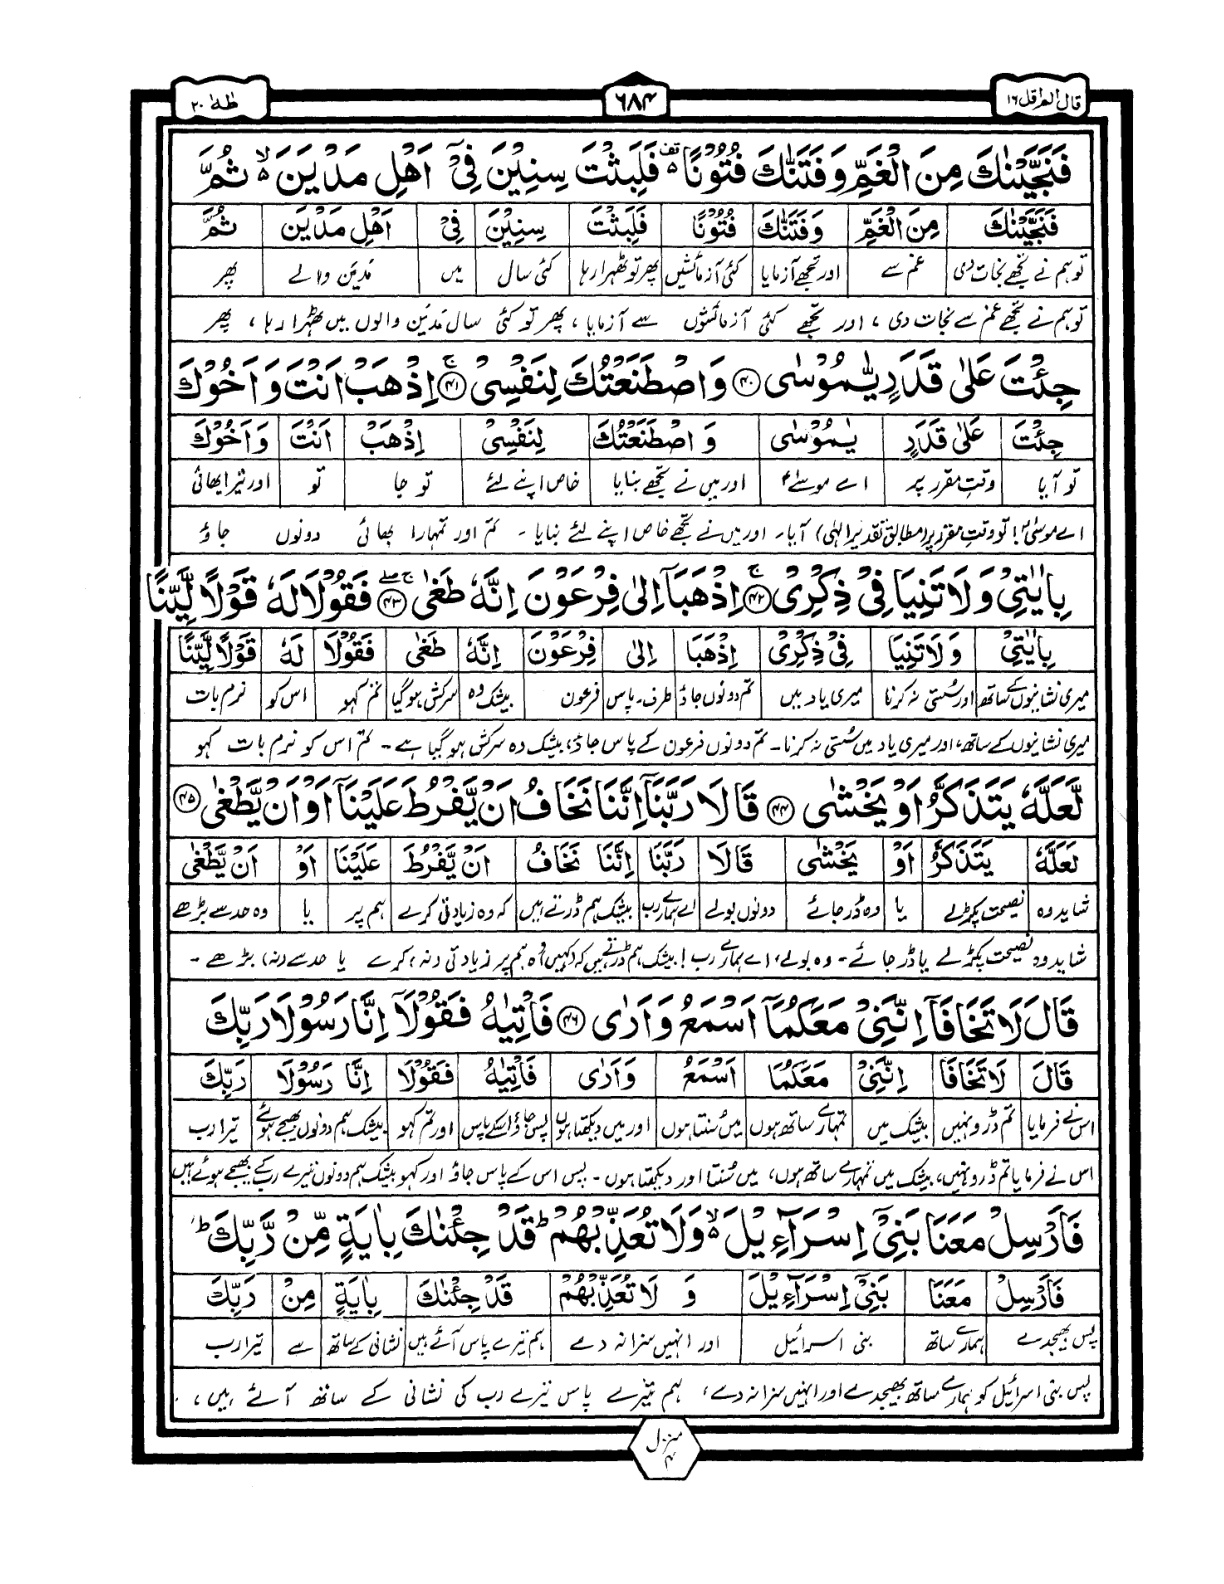 قال الم اقل ۱۶
۶۸۴
طٰهٰ ۲۰
فَنَجَّيْنٰكَ مِنَ الْغَمِّ وَفَتَنّٰكَ فُتُوْنًا۫ فَلَبِثْتَ سِنِيْنَ فِيْۤ اَهْلِ مَدْيَنَ ۙ ثُمَّ
فَنَجَّيْنٰكَ مِنَ الْغَمِّ وَفَتَنّٰكَ فُتُوْنًا فَلَبِثْتَ سِنِيْنَ فِيْ اَهْلِ مَدْيَنَ ثُمَّ
تو ہم نے تجھے نجات دی غم سے اور تجھے آزمایا کئی آزمائشیں پھر تو ٹھہرا رہا کئی سال میں مَدیَن والے پھر
تو ہم نے تجھے غم سے نجات دی ، اور تجھے کئی آزمائشوں سے آزمایا ، پھر تو کئی سال مَدیَن والوں میں ٹھہرا رہا ، پھر
جِئْتَ عَلٰى قَدَرٍ يّٰمُوْسٰى ﴿۴۰﴾ وَاصْطَنَعْتُكَ لِنَفْسِيْ ۚ ﴿۴۱﴾ اِذْهَبْ اَنْتَ وَاَخُوْكَ
جِئْتَ عَلٰى قَدَرٍ يٰمُوْسٰى وَ اصْطَنَعْتُكَ لِنَفْسِيْ اِذْهَبْ اَنْتَ وَاَخُوْكَ
تو آیا وقتِ مقرر پر اے موسٰےؑ اور میں نے تجھے بنایا خاص اپنے لئے تو جا تو اور تیرا بھائی
اے موسیٰؑ! تو وقتِ مقرر پر (مطابق تقدیر الٰہی) آیا۔ اور میں نے تجھے خاص اپنے لئے بنایا ۔ تم اور تمہارا بھائی دونوں جاؤ
بِاٰيٰتِيْ وَلَا تَنِيَا فِيْ ذِكْرِيْ ۚ ﴿۴۲﴾ اِذْهَبَاۤ اِلٰى فِرْعَوْنَ اِنَّهٗ طَغٰى ۚۖ ﴿۴۳﴾ فَقُوْلَا لَهٗ قَوْلًا لَّيِّنًا
بِاٰيٰتِيْ وَلَا تَنِيَا فِيْ ذِكْرِيْ اِذْهَبَا اِلٰى فِرْعَوْنَ اِنَّهٗ طَغٰى فَقُوْلَا لَهٗ قَوْلًا لَّيِّنًا
میری نشانیوں کے ساتھ اور سُستی نہ کرنا میری یاد میں تم دونوں جاؤ طرف۔پاس فرعون بیشک وہ سرکش ہو گیا تم کہو اس کو نرم بات
میری نشانیوں کے ساتھ، اور میری یاد میں سُستی نہ کرنا۔ تم دونوں فرعون کے پاس جاؤ، بیشک وہ سرکش ہو گیا ہے ۔ تم اس کو نرم بات کہو
لَّعَلَّهٗ يَتَذَكَّرُ اَوْ يَخْشٰى ﴿۴۴﴾ قَالَا رَبَّنَاۤ اِنَّنَا نَخَافُ اَنْ يَّفْرُطَ عَلَيْنَاۤ اَوْ اَنْ يَّطْغٰى ﴿۴۵﴾
لَعَلَّهٗ يَتَذَكَّرُ اَوْ يَخْشٰى قَالَا رَبَّنَا اِنَّنَا نَخَافُ اَنْ يَّفْرُطَ عَلَيْنَا اَوْ اَنْ يَّطْغٰى
شاید وہ نصیحت پکڑلے یا وہ ڈر جائے دونوں بولے اے ہمارے رب بیشک ہم ڈرتے ہیں کہ وہ زیادتی کرے ہم پر یا وہ حد سے بڑھے
شاید وہ نصیحت پکڑ لے یا ڈر جائے۔ وہ بولے، اے ہمارے رب ! بیشک ہم ڈرتے ہیں کہ (کہیں) وہ ہم پر زیادتی (نہ) کرے یا حد سے (نہ) بڑھے ۔
قَالَ لَا تَخَافَاۤ اِنَّنِيْ مَعَكُمَاۤ اَسْمَعُ وَاَرٰى ﴿۴۶﴾ فَاْتِيٰهُ فَقُوْلَاۤ اِنَّا رَسُوْلَا رَبِّكَ
قَالَ لَا تَخَافَا اِنَّنِيْ مَعَكُمَا اَسْمَعُ وَاَرٰى فَاْتِيٰهُ فَقُوْلَا اِنَّا رَسُوْلَا رَبِّكَ
اس نے فرمایا تم ڈرو نہیں بیشک میں تمہارے ساتھ ہوں میں سُنتا ہوں اور میں دیکھتا ہوں پس جاؤ اسکے پاس اور تم کہو بیشک ہم دونوں بھیجے ہوئے تیرا رب
اس نے فرمایا تم ڈرو نہیں، بیشک میں تمہارے ساتھ ہوں، میں سُنتا اور دیکھتا ہوں ۔ پس اس کے پاس جاؤ اور کہو بیشک ہم دونوں تیرے رب کے بھیجے ہوئے ہیں
فَاَرْسِلْ مَعَنَا بَنِيْۤ اِسْرَآءِيْلَ ۙ۬ وَلَا تُعَذِّبْهُمْ ؕ قَدْ جِئْنٰكَ بِاٰيَةٍ مِّنْ رَّبِّكَ ؕ
فَاَرْسِلْ مَعَنَا بَنِيْ اِسْرَآءِيْلَ وَ لَا تُعَذِّبْهُمْ قَدْ جِئْنٰكَ بِاٰيَةٍ مِنْ رَبِّكَ
پس بھیجدے ہمارے ساتھ بنی اسرائیل اور انہیں سزا نہ دے ہم تیرے پاس آئے ہیں نشانی کے ساتھ سے تیرا رب
پس بنی اسرائیل کو ہمارے ساتھ بھیجدے اور انہیں سزا نہ دے، ہم تیرے پاس تیرے رب کی نشانی کے ساتھ آئے ہیں ،
منزل ۴